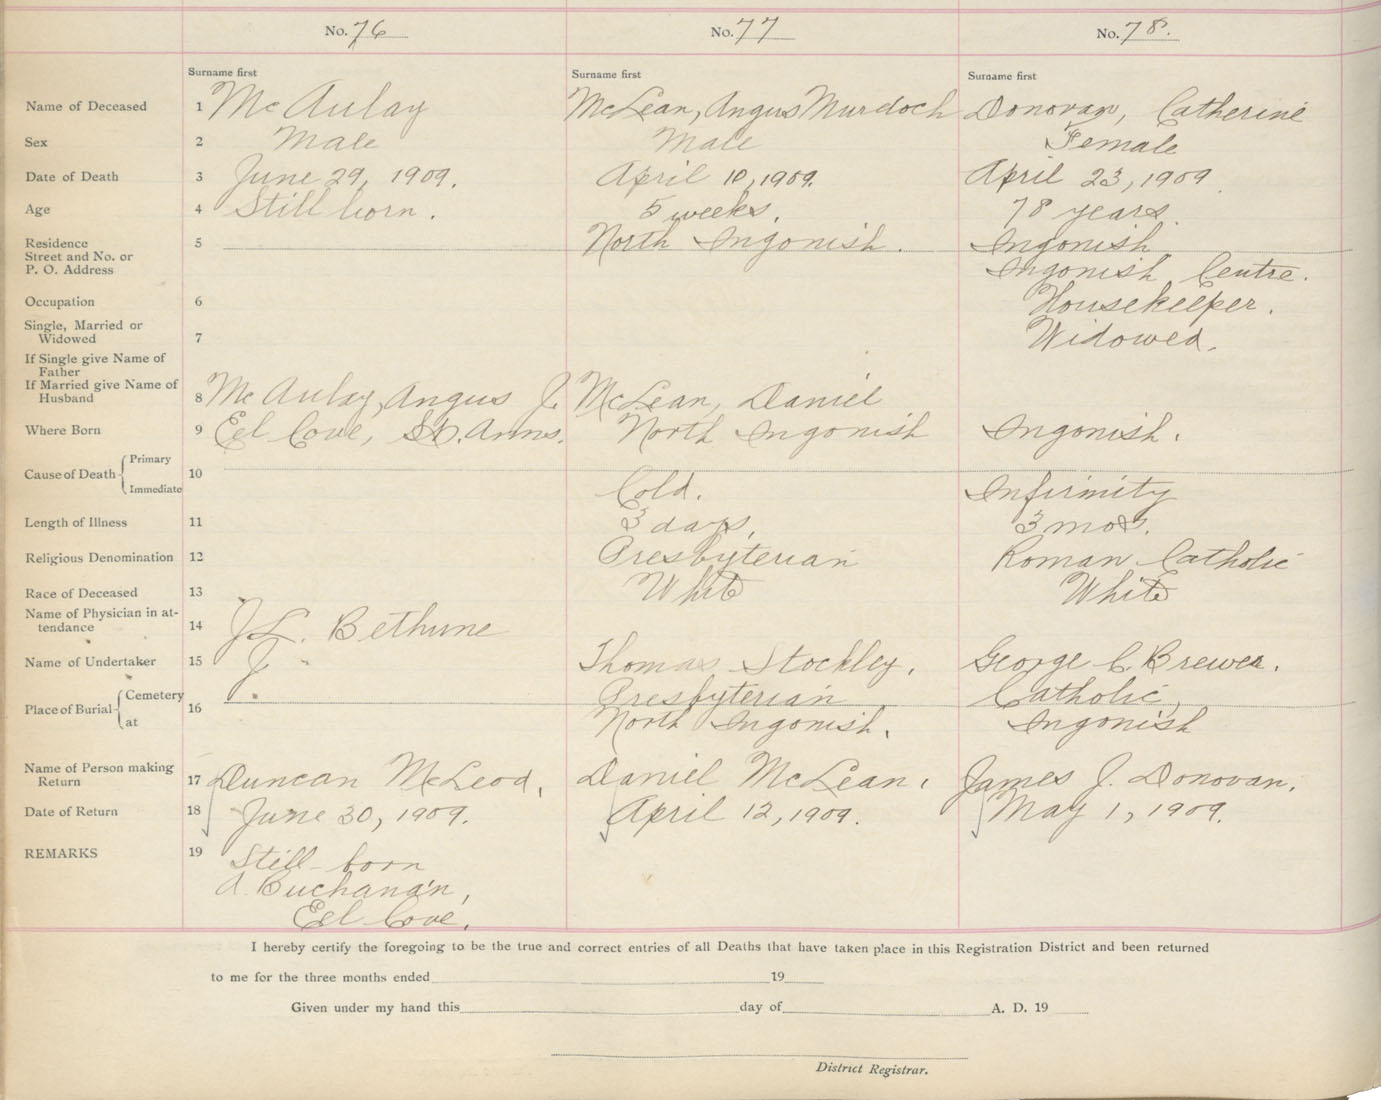 No. 76 No. 77 No. 78.
Surname first Surname first Surname first
Name of Deceased 1 McAulay McLean, Angus Murdoch Donovan, Catherine
Sex 2 Male Male Female
Date of Death 3 June 29, 1909. April 10, 1909. April 23, 1909.
Age 4 Still born. 5 weeks. 78 years.
Residence 5 North Ingonish. Ingonish
Street and No. or
P. O. Address Ingonish Centre.
Occupation 6 Housekeeper.
Single, Married or
Widowed 7 Widowed.
If Single give Name of
Father
If Married give Name of
Husband 8 McAulay, Angus J. McLean, Daniel
Where Born 9 Eel Cove, St. Anns. North Ingonish Ingonish.
Primary
Cause of Death 10
Immediate Cold. Infirmity
Length of Illness 11 3 days, 3 mos.
Religious Denomination 12 Presbyterian Roman Catholic
Race of Deceased 13 White White
Name of Physician in at-
tendance 14 J.L. Bethune
Name of Undertaker 15 Thomas Stockley. George C. Brewer.
Cemetery Presbyterian Catholic,
Place of Burial 16
at North Ingonish. Ingonish
Name of Person making
Return 17 Duncan McLeod, Daniel McLean. James J. Donovan.
Date of Return 18 June 30, 1909. April 12, 1909. May 1, 1909.
REMARKS 19 Still-born
A. Buchanan,
Eel Cove.
I hereby certify the foregoing to be the true and correct entries of all Deaths that have taken place in this Registration District and been returned
to me for the three months ended 19
Given under my hand this day of A. D. 19
District Registrar.